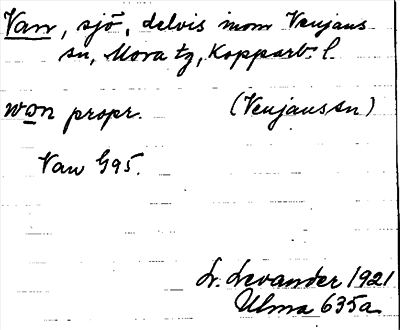 Van, sjö, delvis inom Venjans
sn, Mora tg, Kopparb. l.
wan propr. (Venjans sn)
Van G95.
L. Levander 1921
Ulma 635a